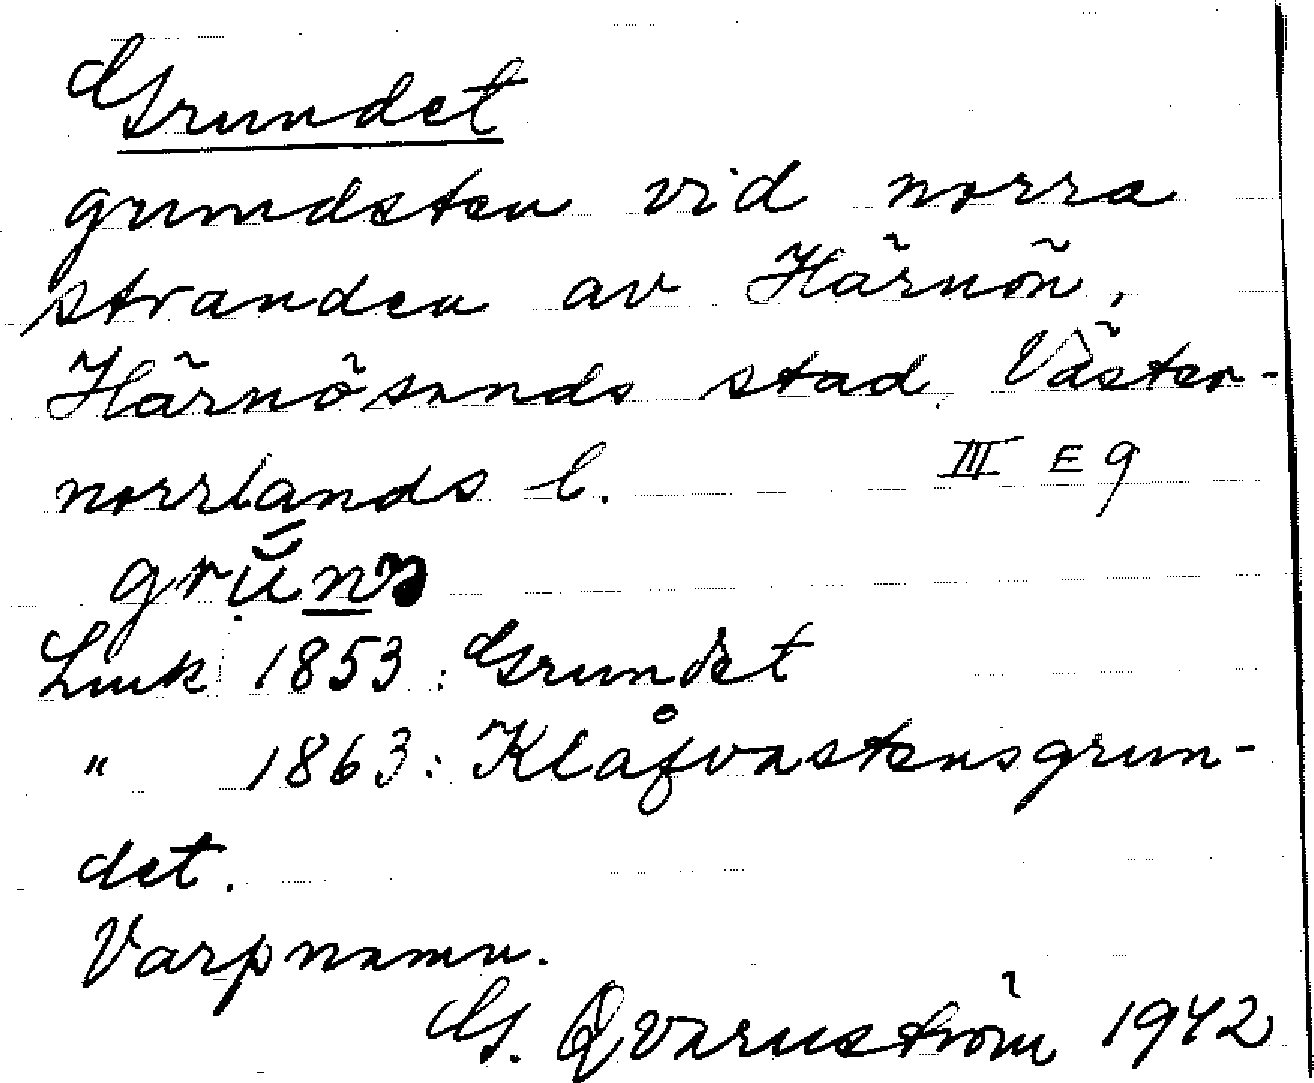 Grundet
grundsten vid norra
stranden av Härnön,
Härnösands stad. Väster-
norrlands l. III E 9
Link 1853: Grundet
" 1863: Klåfvastensgrun-
det.
Varpnamn.
G. Qvarnström 1942